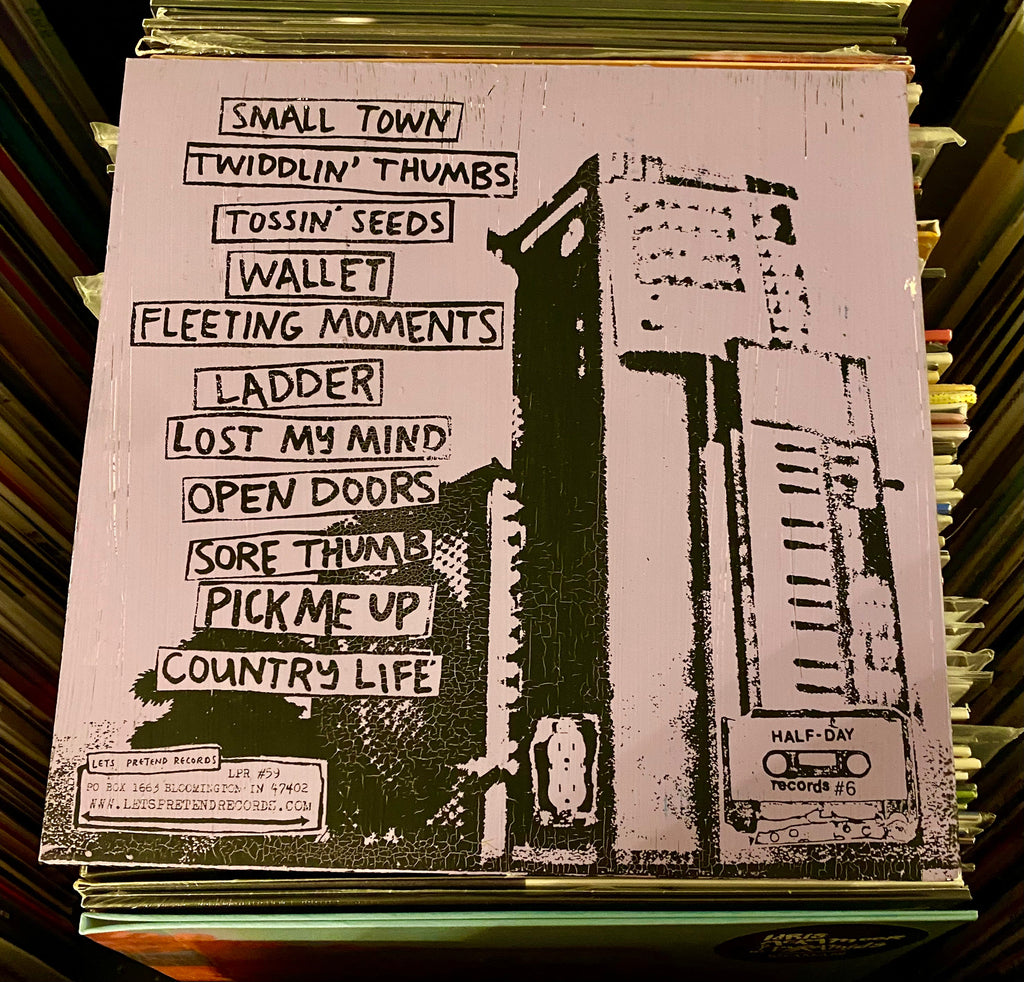 SMALL TOWN
TWIDDLIN' THUMBS
TOSSIN' SEEDS
WALLET
FLEETING MOMENTS
LADDER
LOST MY MIND
OPEN DOORS
SORE THUMB
PICK ME UP
COUNTRY LIFE
LETS PRETEND RECORDS
LPR #59
PO BOX 1663 BLOOMINGTON IN 47402
WWW.LETSPRETENDRECORDS.COM
HALF-DAY
records #6